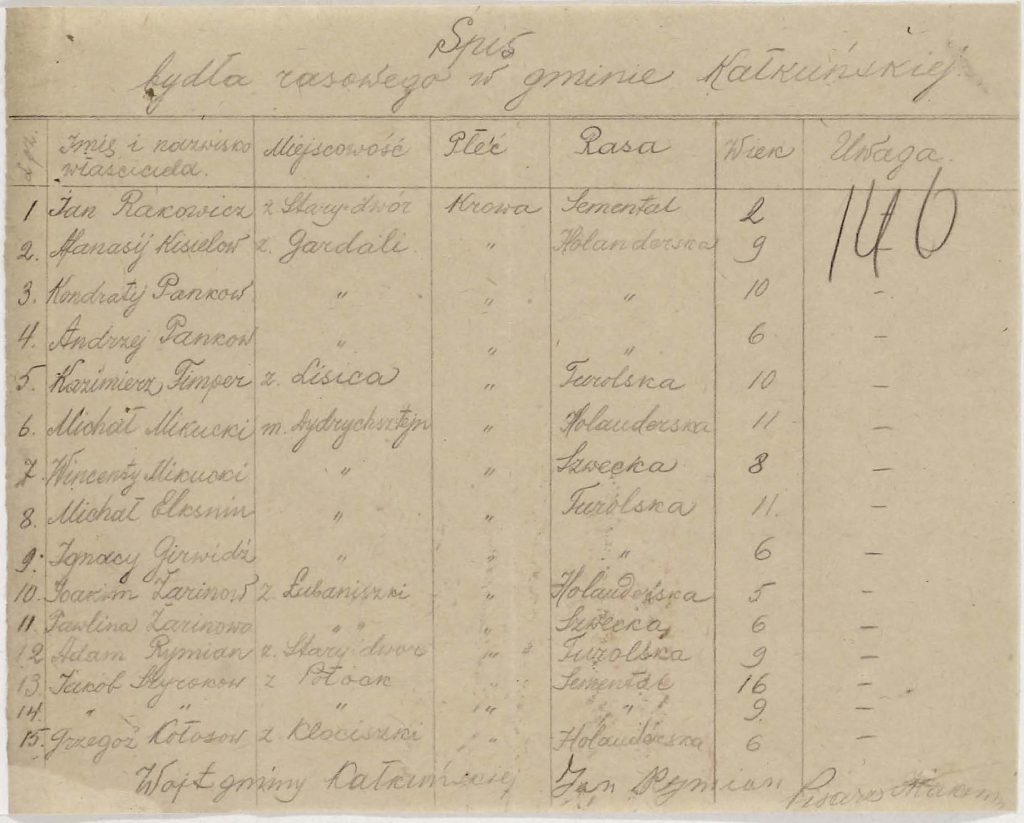 Spis
bydła rasowego w gminie Kałkuńskiej.
L.p. Imię i nazwisko właściciela. Miejscowość Płeć Rasa Wiek Uwaga.
1 Jan Rakowicz z Stary-dwór Krowa Semental 2
146
2. Afanasij Kisielow z. Gardali. " Holanderska 9
3. Kondratij Pankow " " " 10 –
4. Andrzej Pankow " " " 6 –
5. Kazimierz Timper z. Lisica " Turolska 10 –
6. Michał Mikucki m. Dydrychsztejn " Holanderska 11 –
7. Wincenty Mikucki " " Szwecka 8 –
8. Michał Elksnin " " Turolska 11. –
9. Ignacy Girwidź " " " 6 –
10. Joakim Zarinow z Łubaniszki " Holanderska 5 –
11. Pawlina Zarinowa " " " Szwecka 6 –
12 Adam Rymian z. Stary-dwor " Turolska 9 –
13. Jakob Szyrokow z Połock " Semental 16 –
14. " " " " " " 9. –
15. Grzegoż Kołosow z Klociszki " Holanderska 6 –
Wojt gminy Kałkuńskiej Jan Rymian Pisarz